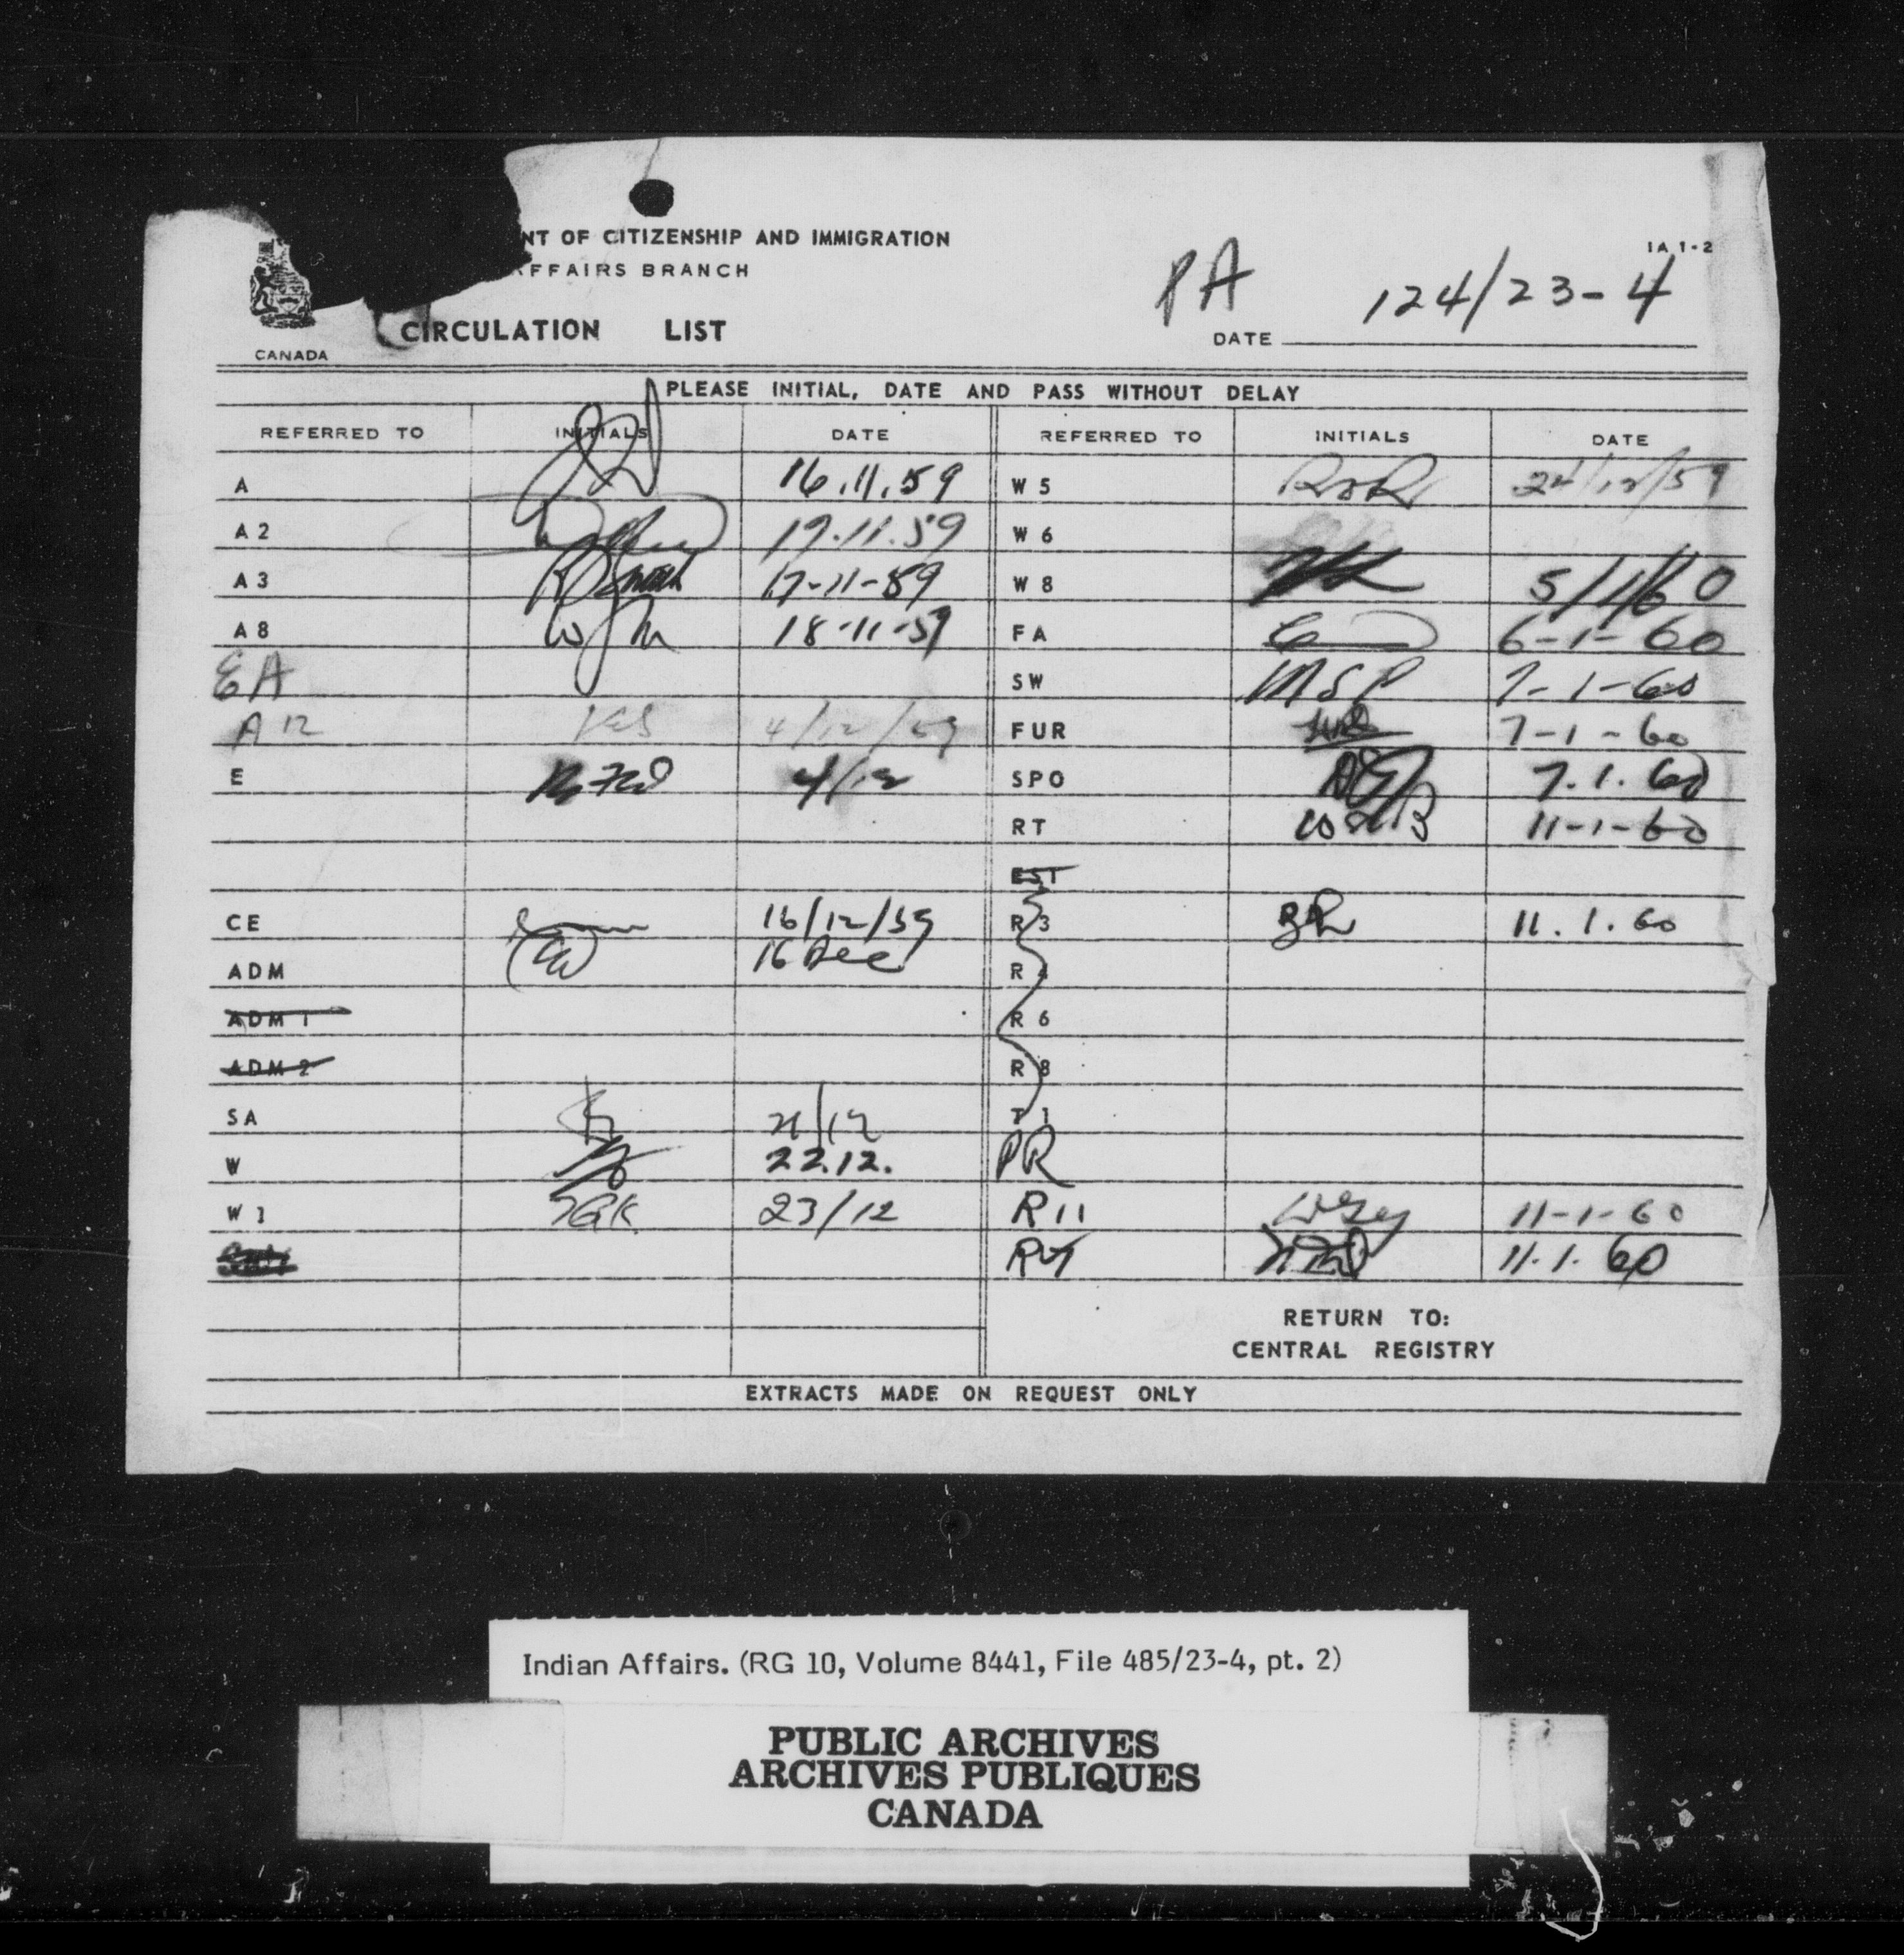 NT OF CITIZENSHIP AND IMMIGRATION
AFFAIRS BRANCH
IA 1-2
PA
124/23-4
CIRCULATION LIST
DATE
CANADA
PLEASE INITIAL, DATE AND PASS WITHOUT DELAY
REFERRED TO INITIALS DATE REFERRED TO INITIALS DATE
A 16.11.59 W 5 24/12/59
A 2 17.11.59 W 6
A 3 17-11-59 W 8 5/1/60
A 8 18-11-59 FA 6-1-60
EA SW MSP 7-1-60
A 12 4/12/59 FUR 7-1-60
E 4/12 SPO 7.1.60
RT 11-1-60
EST
CE 16/12/59 R 3 11.1.60
ADM 16 Dec R 4
ADM 1 R 6
ADM 2 R 8
SA 21/12 T 1
W 22.12. PR
W 1 23/12 R 11 11-1-60
11.1.60
RETURN TO:
CENTRAL REGISTRY
EXTRACTS MADE ON REQUEST ONLY
Indian Affairs. (RG 10, Volume 8441, File 485/23-4, pt. 2)
PUBLIC ARCHIVES
ARCHIVES PUBLIQUES
CANADA